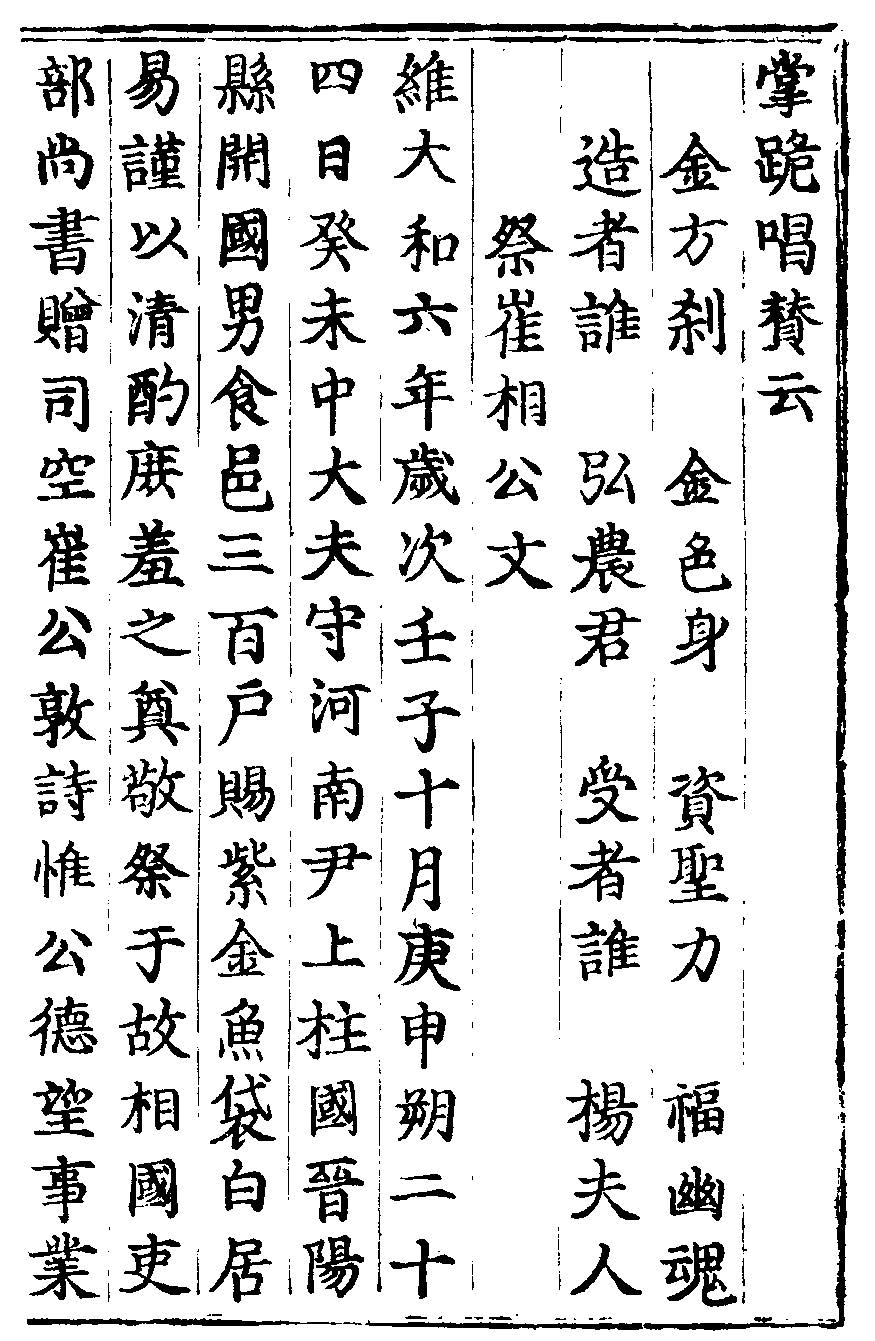 掌跪唱賛云
金方刹　金色身　資聖力　福幽魂
造者誰　弘農君　受者誰　楊夫人
祭崔相公文
維大和六年歲次壬子十月庚申朔二十
四日癸未中大夫守河南尹上柱國晉陽
縣開國男食邑三百戶賜紫金魚袋白居
易謹以清酌庶羞之奠敬祭于故相國吏
部尚書贈司空崔公敦詩惟公德望事業